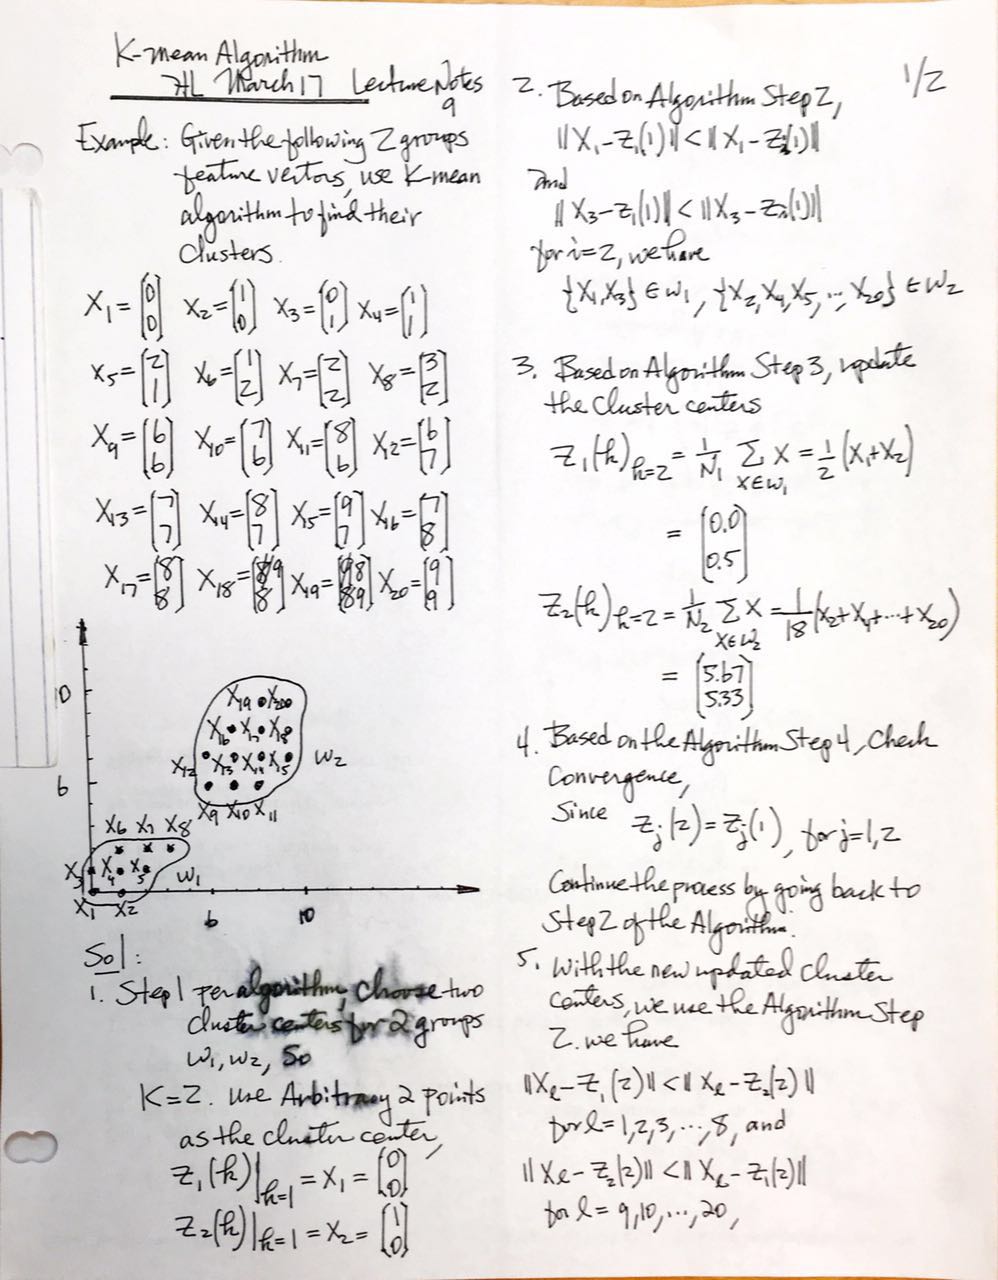 K-mean Algorithm
HL March 17 Lecture Notes
9
Example: Given the following 2 groups
feature vectors, use K mean
algorithm to find their
clusters.
X₁ = (0 0) X₂ = (1 0) X₃ = (0 1) X₄ = (1 1)
X₅ = [2 1] X₆ = [1 2] X₇ = [2 2] X₈ = [3 2]
X₉ = [6 6] X₁₀ = [7 6] X₁₁ = [8 6] X₁₂ = [6 7]
X₁₃ = [7 7] X₁₄ = [8 7] X₁₅ = [9 7] X₁₆ = [7 8]
X₁₇ = [8 8] X₁₈ = [9 8] X₁₉ = [8 9] X₂₀ = [9 9]
10
X₁₉ X₂₀
X₁₆ X₁₇ X₁₈
X₁₂ X₁₃ X₁₄ X₁₅ W₂
6
X₉ X₁₀ X₁₁
X₆ X₇ X₈
X₃ X₄ X₅ W₁
X₁ X₂ 6 10
Sol:
1. Step 1 per algorithm, choose two
cluster centers for 2 groups
W₁, W₂, So
K=2. Use Arbitrary 2 points
as the cluster center,
Z₁(k)|k=1 = X₁ = (0 0)
Z₂(k)|k=1 = X₂ = (1 0)
1/2
2. Based on Algorithm Step 2,
||X₁-Z₁(1)|| < ||X₁-Z₂(1)||
and
||X₃-Z₁(1)|| < ||X₃-Z₂(1)||
for i=2, we have
{X₁,X₃} ∈ W₁, {X₂,X₄,X₅,...,X₂₀} ∈ W₂
3. Based on Algorithm Step 3, update
the Cluster centers
Z₁(k)k=2 = 1/N₁ Σ X∈W₁ X = 1/2 (X₁+X₂)
= (0.0 0.5)
Z₂(k)k=2 = 1/N₂ Σ X∈W₂ X = 1/18 (X₂+X₄+...+X₂₀)
= [5.67 5.33]
4. Based on the Algorithm Step 4, Check
Convergence,
Since Zj(2) = Zj(1), for j=1,2
Continue the process by going back to
Step 2 of the Algorithm.
5. With the new updated cluster
centers, we use the Algorithm Step
2. we have
||Xℓ-Z₁(2)|| < ||Xℓ-Z₂(2)||
for ℓ=1,2,3,...,8, and
||Xℓ-Z₂(2)|| < ||Xℓ-Z₁(2)||
for ℓ= 9,10,...,20,